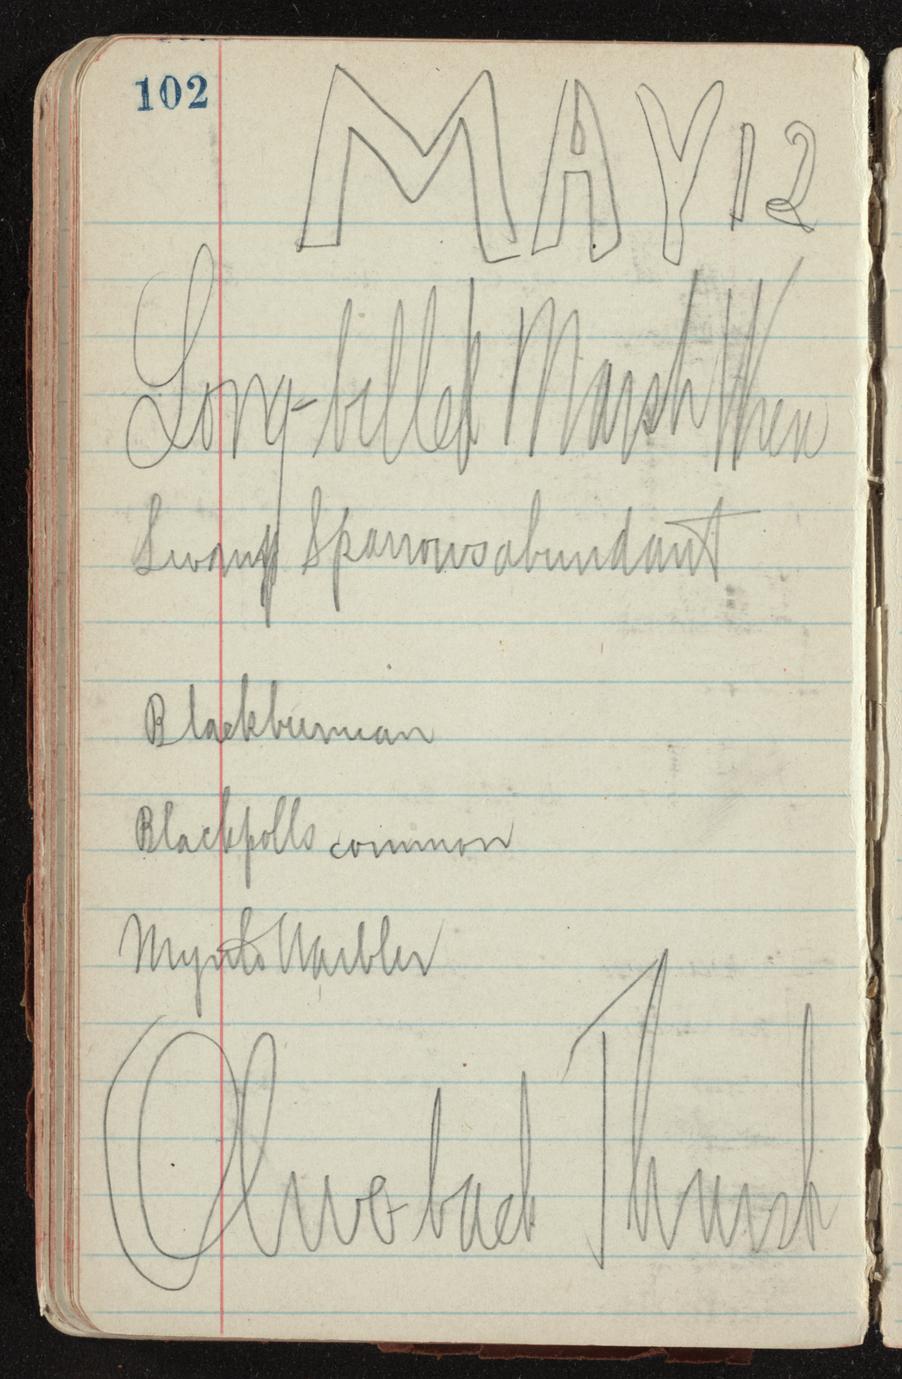 102
MAY 12
Long-billed Marsh Wren
Swamp Sparrows abundant
Blackburnian
Blackpolls common
Myrtle Warbler
Olive-back Thrush